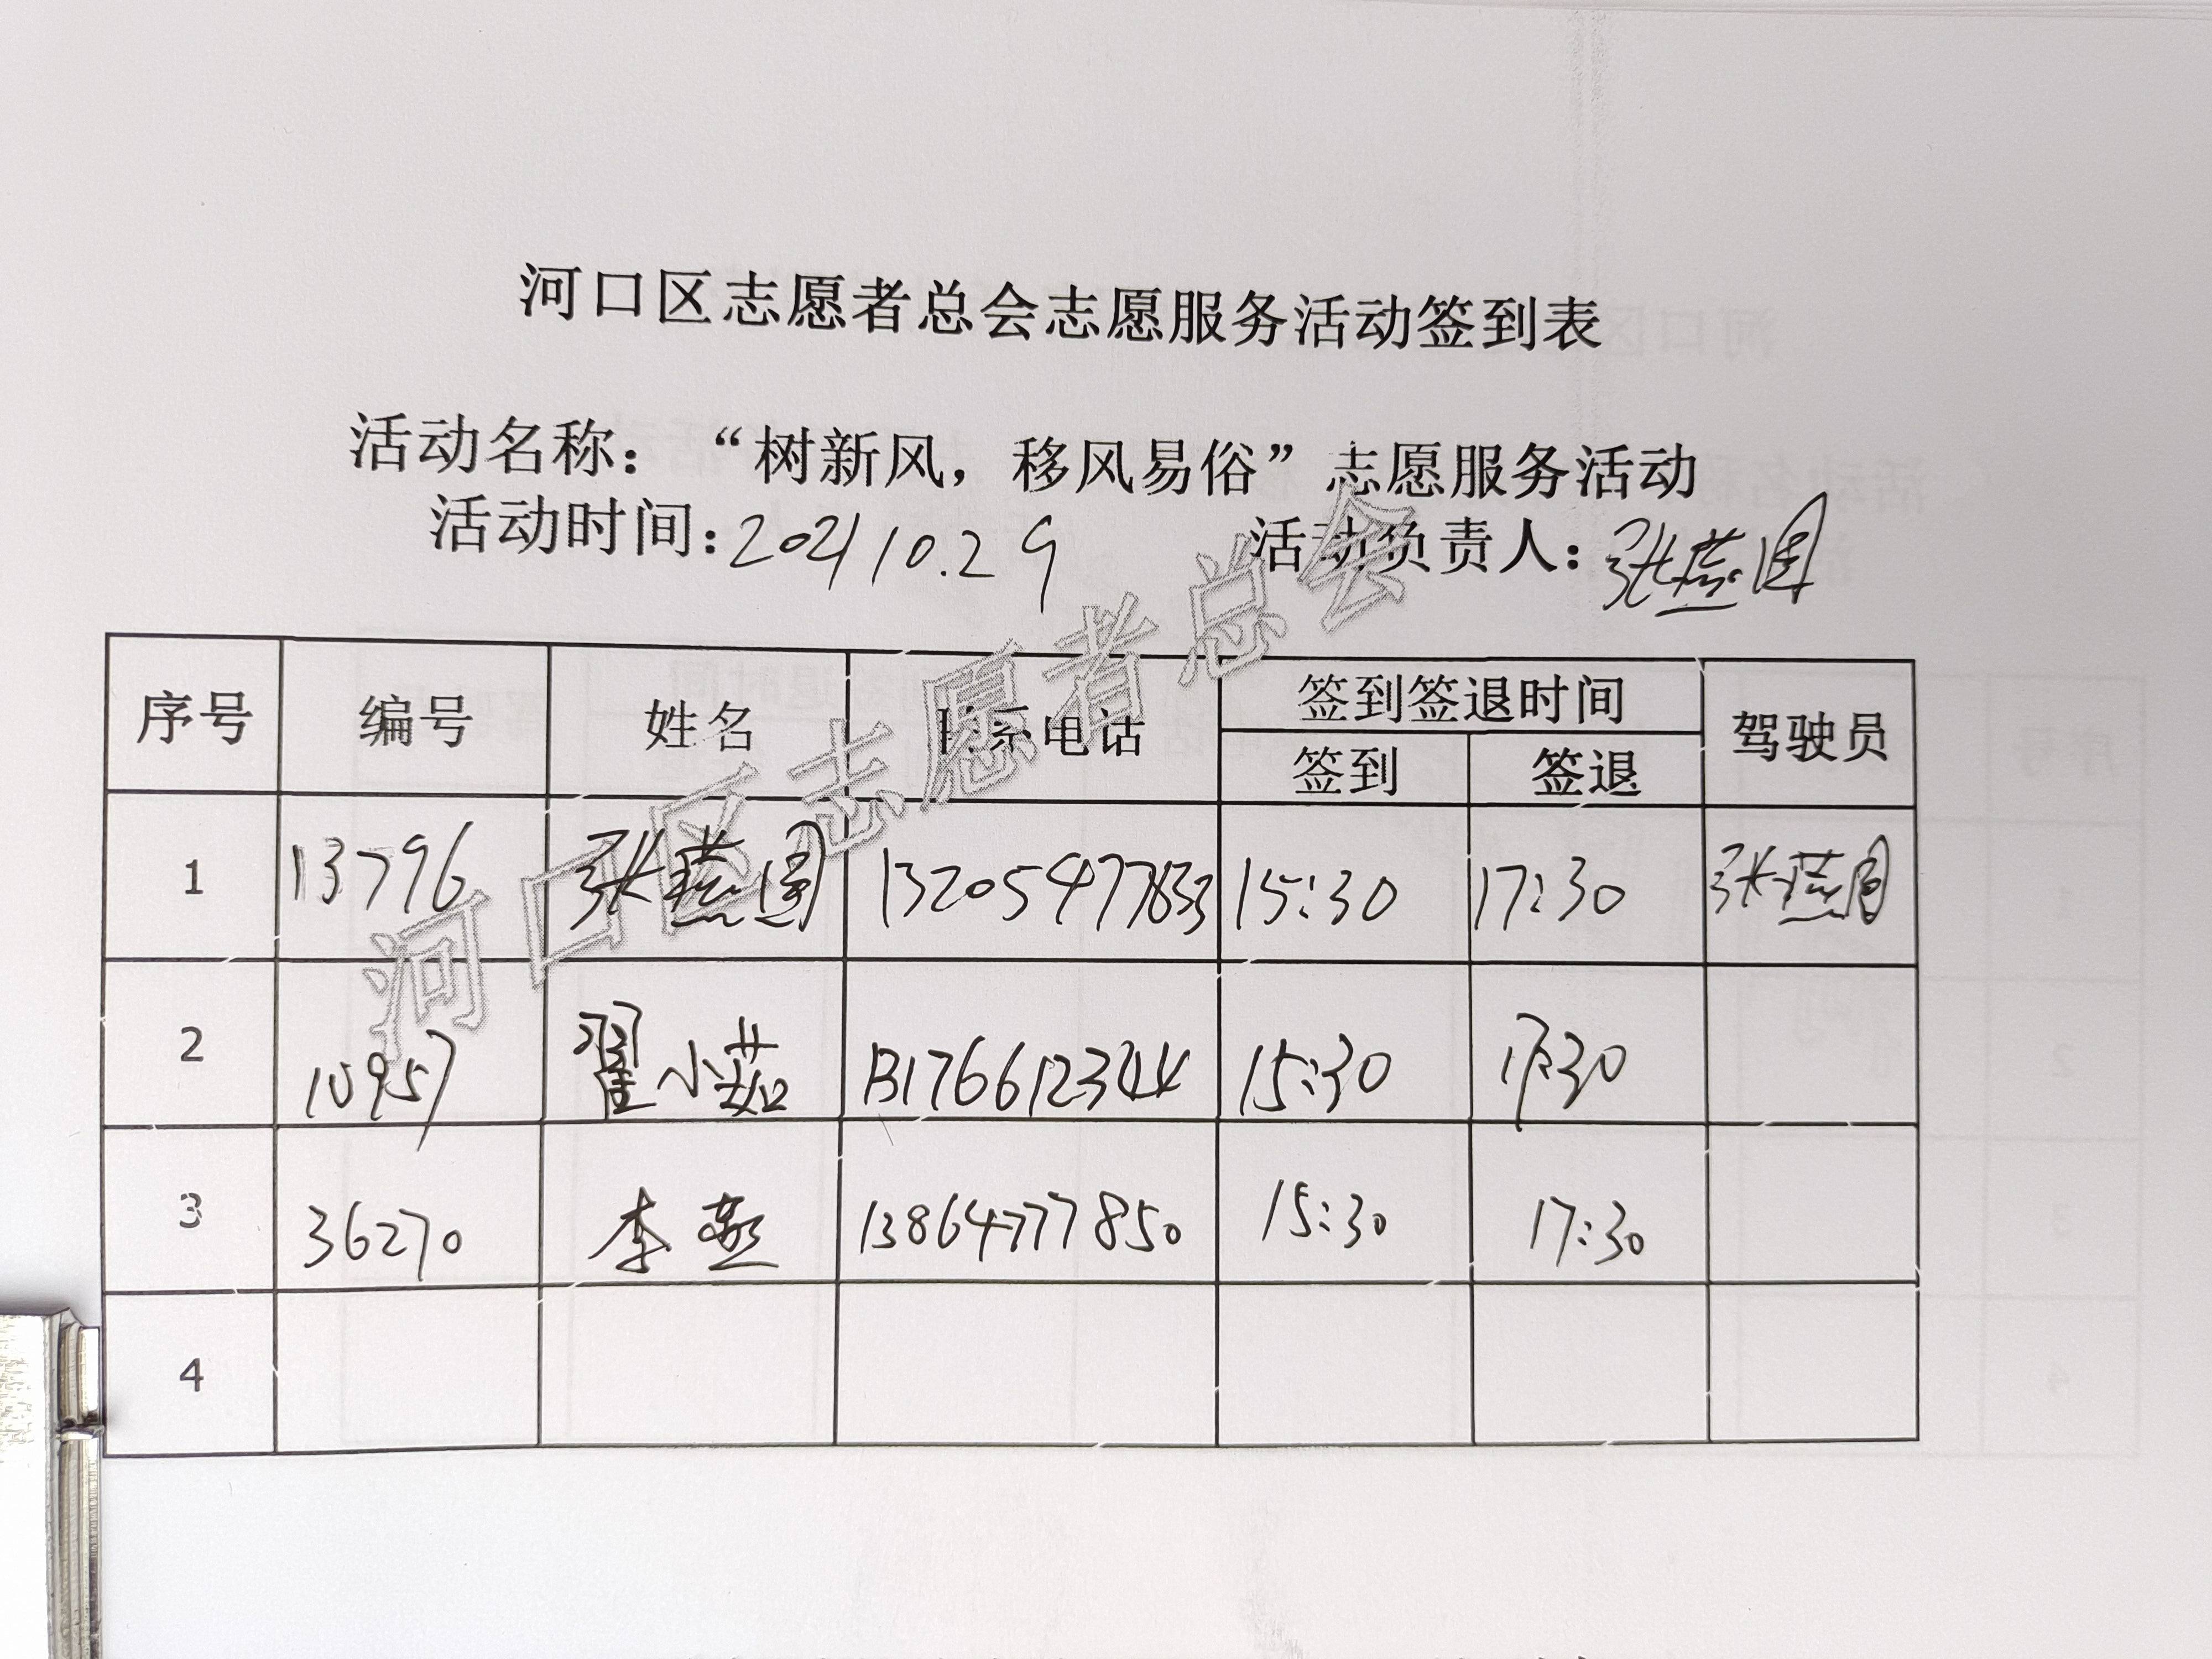 河口区志愿者总会志愿服务活动签到表
活动名称：“树新风，移风易俗”志愿服务活动
活动时间：2021 10.29 活动负责人：张燕国
序号 编号 姓名 联系电话 签到签退时间 驾驶员
签到 签退
1 13796 张燕国 13205477833 15:30 17:30 张燕国
2 10957 翟小茹 13176612344 15:30 17:30
3 36270 李燕 13864777850 15:30 17:30
4
河口区志愿者总会